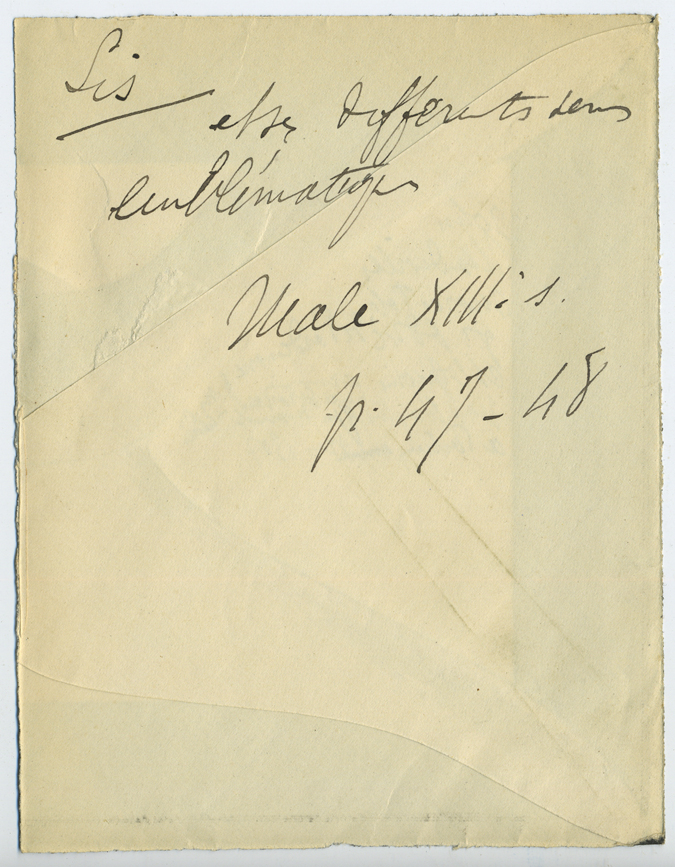 Lis et ses différents sens
emblématiques
Male XIIIe s.
p. 47-48